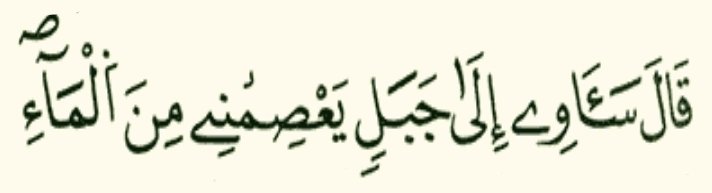 قَالَ سَـَٔاوِے إِلَىٰ جَبَلٍ يَعْصِمُنِے مِنَ اَ۬لْمَآءِۖ